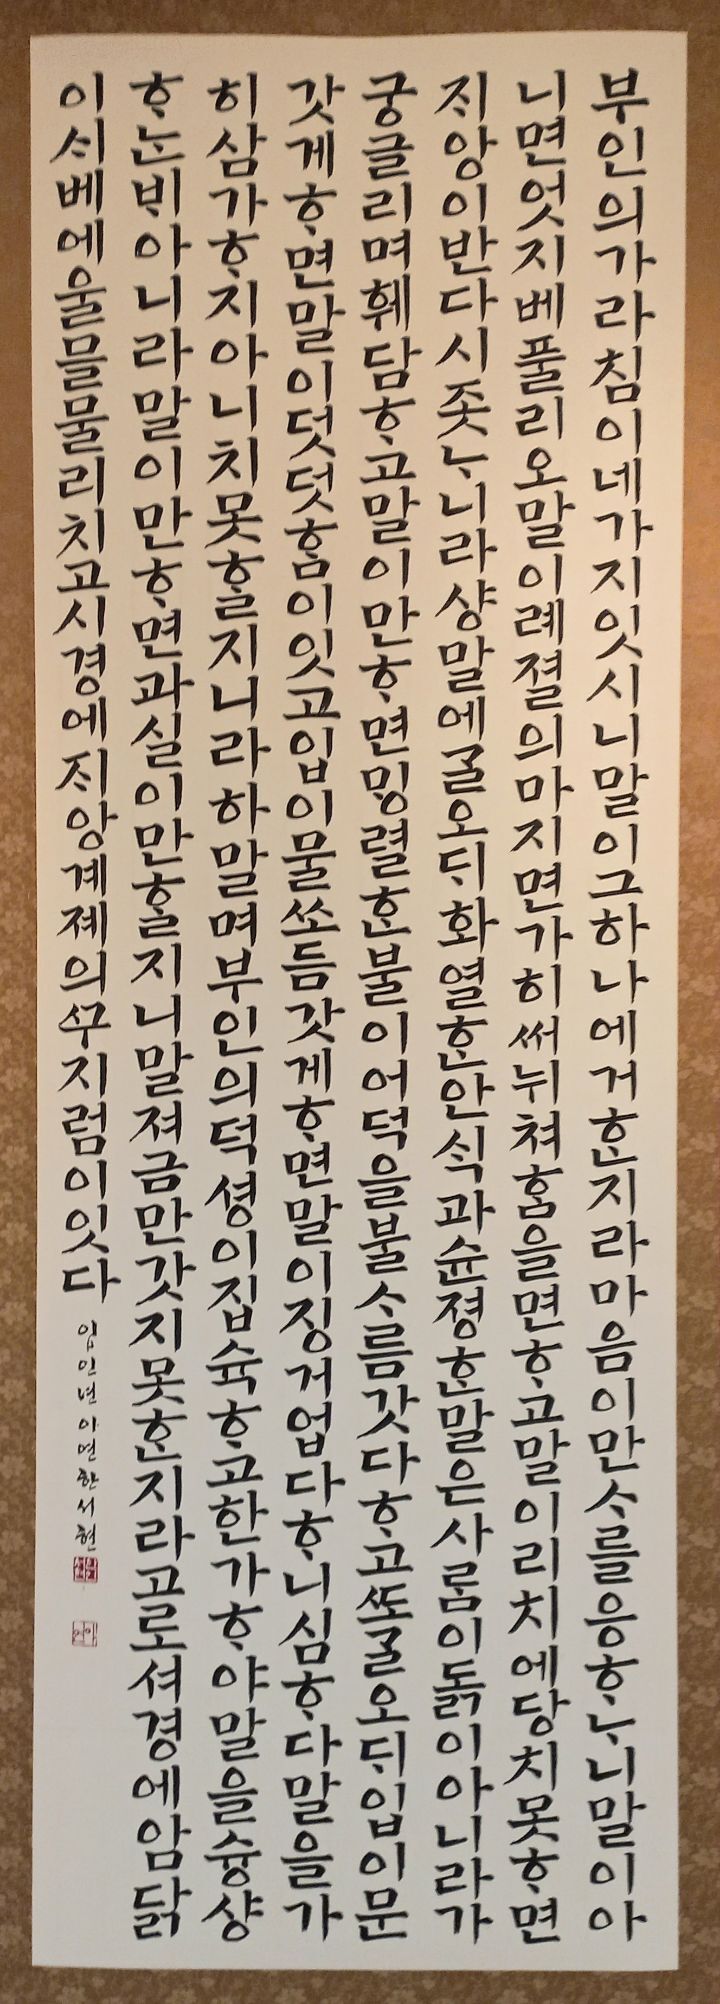 부인의가라침이네가지잇시니말이그하나에거ᄒᆞᆫ지라마음이만ᄉᆞ를응ᄒᆞᄂᆞ니말이아
니면엇지베풀리오말이례졀의마지면가히써뉘쳐ᄒᆞᆷ을면ᄒᆞ고말이리치에당치못ᄒᆞ면
ᄌᆡ앙이반다시좃ᄂᆞ니라샹말에ᄀᆞᆯ오ᄃᆡ화열ᄒᆞᆫ안ᄉᆡᆨ과슌졍ᄒᆞᆫ말은사ᄅᆞᆷ이돍이아니라가
궁글리며훼담ᄒᆞ고말이만ᄒᆞ면ᄆᆡᆼ렬ᄒᆞᆫ불이어덕을불ᄉᆞ름갓다ᄒᆞ고ᄯᅩᄀᆞᆯ오ᄃᆡ입이문
갓게ᄒᆞ면말이덧덧ᄒᆞᆷ이잇고입이물쏘듬갓게ᄒᆞ면말이징거업다ᄒᆞ니심ᄒᆞ다말을가
히삼가ᄒᆞ지아니치못ᄒᆞᆯ지니라하말며부인의덕셩이집슉ᄒᆞ고한가ᄒᆞ야말을슝샹
ᄒᆞᄂᆞᆫᄇᆡ아니라말이만ᄒᆞ면과실이만ᄒᆞᆯ지니말져금만갓지못ᄒᆞᆫ지라고로셔경에암닭
이ᄉᆡ베에울믈물리치고시경에ᄌᆡ앙계졔의ᄭᅮ지럼이잇다
임인년아연한서현